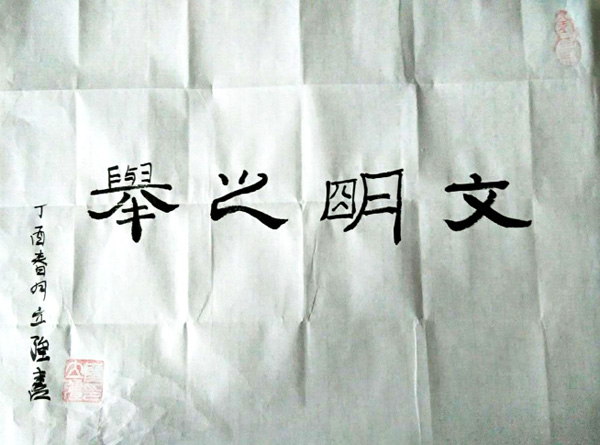 文朙之舉
丁酉春月立強書